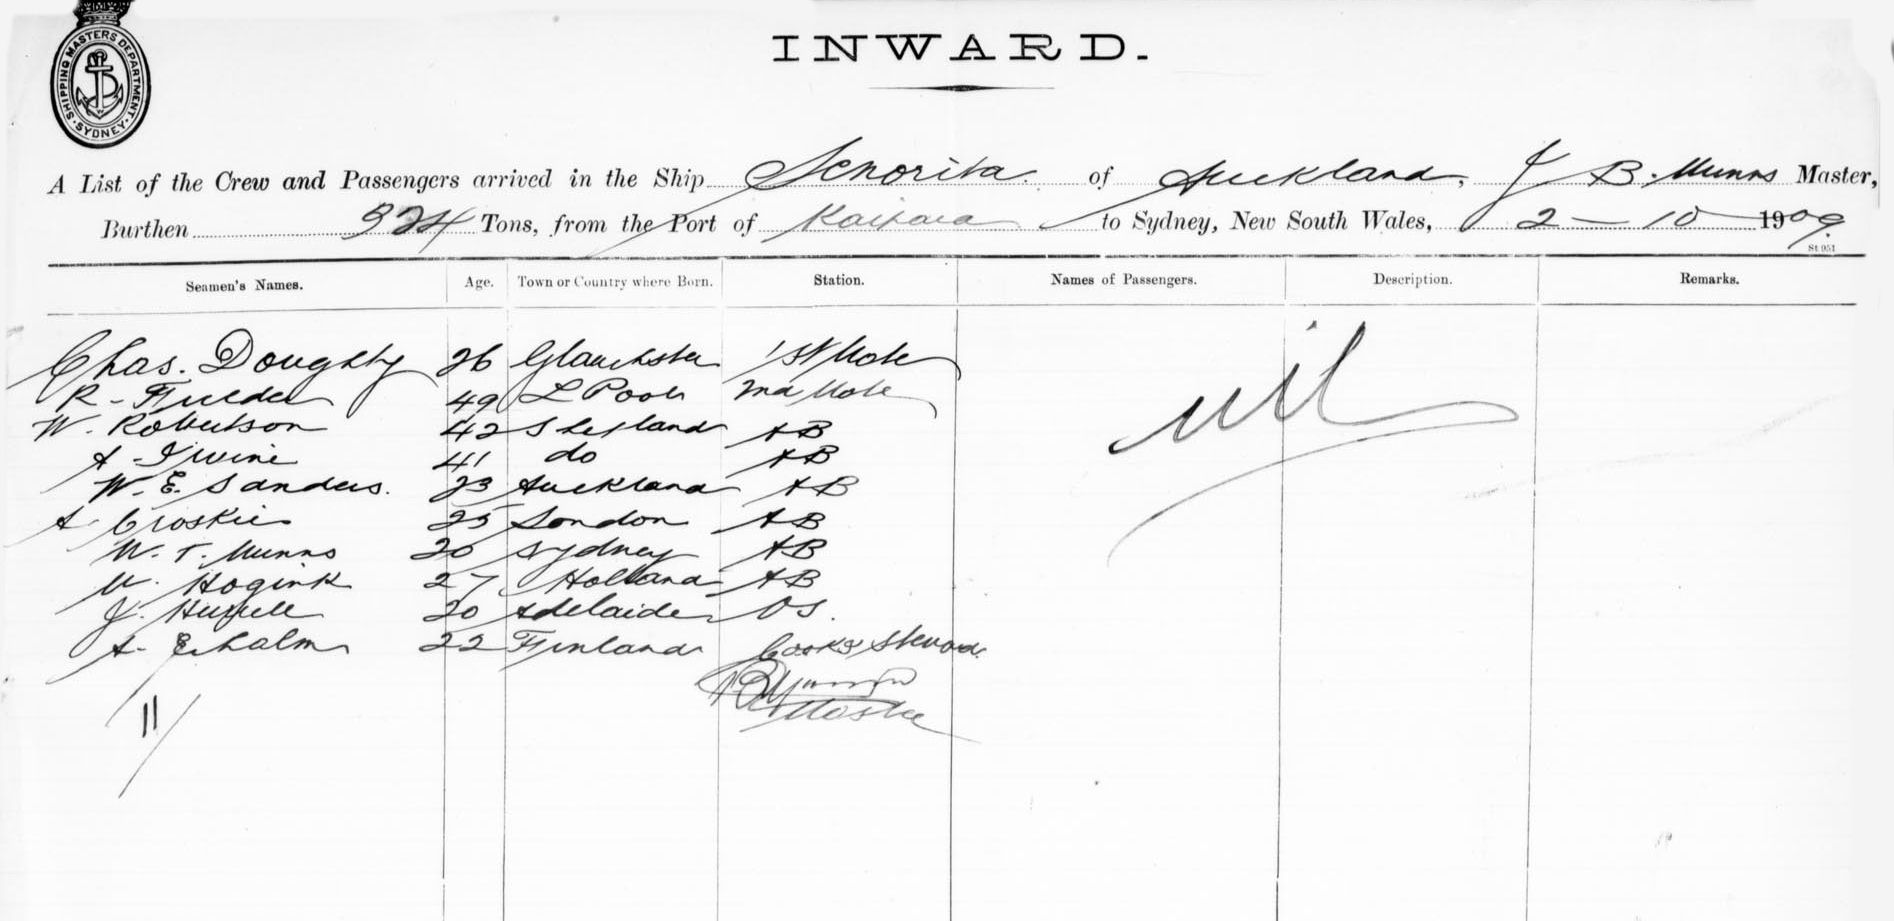 SHIPPING MASTERS DEPARTMENT. SYDNEY.
INWARD.
A List of the Crew and Passengers arrived in the Ship Senorita. of Auckland, J B. Munns Master,
Burthen 324 Tons, from the Port of Kaipara to Sydney, New South Wales, 2 - 10 1909.
St 951
Seamen's Names. Age. Town or Country where Born. Station. Names of Passengers. Description. Remarks.
Chas. Doughty 26 1st Mate nil
R - 49 L Pool 2nd Mate
W. Robertson 42 Shetland AB
A - Irvine 41 do AB
W. E. Sanders. 23 Auckland AB
A Croskie 25 London AB
W. T. Munns 20 Sydney AB
Hogink 27 Holland AB
J. 20 Adelaide OS.
A - Ekholm 22 Finland Cook & Steward.
11
JB Munns
Master